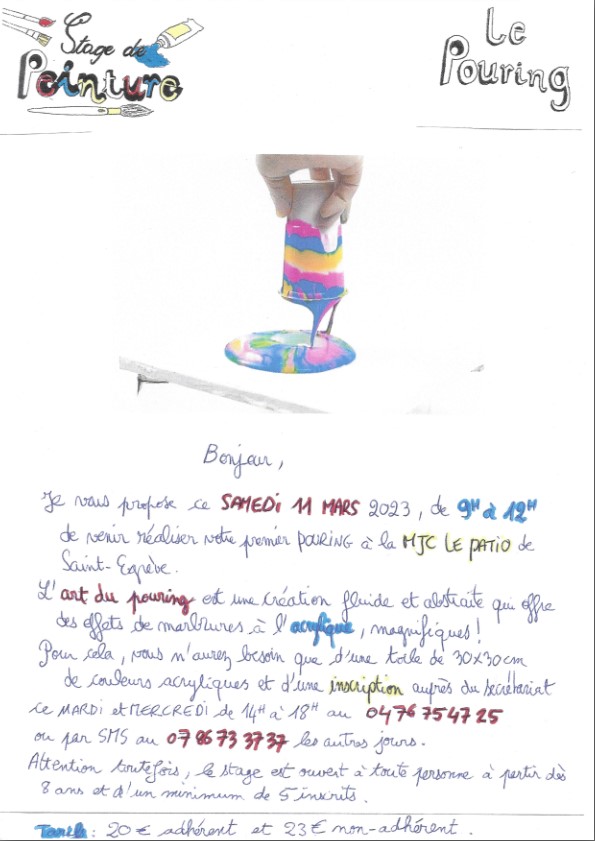 Stage de
Peinture
Le
Pouring
Bonjour,
Je vous propose ce SAMEDI 11 MARS 2023, de 9H à 12H
de venir réaliser votre premier POURING à la MJC LE PATIO de
Saint-Egrève.
L'art du pouring est une création fluide et abstraite qui offre
des effets de marbrures à l'acrylique, magnifiques !
Pour cela, vous n'aurez besoin que d'une toile de 30x30cm
de couleurs acryliques et d'une inscription auprès du secrétariat
ce MARDI et MERCREDI de 14H à 18H au 04 76 75 47 25
ou par SMS au 07 86 73 37 37 les autres jours.
Attention toutefois, le stage est ouvert à toute personne à partir dès
8 ans et d'un minimum de 5 inscrits.
Tarifs : 20 € adhérent et 23 € non-adhérent.